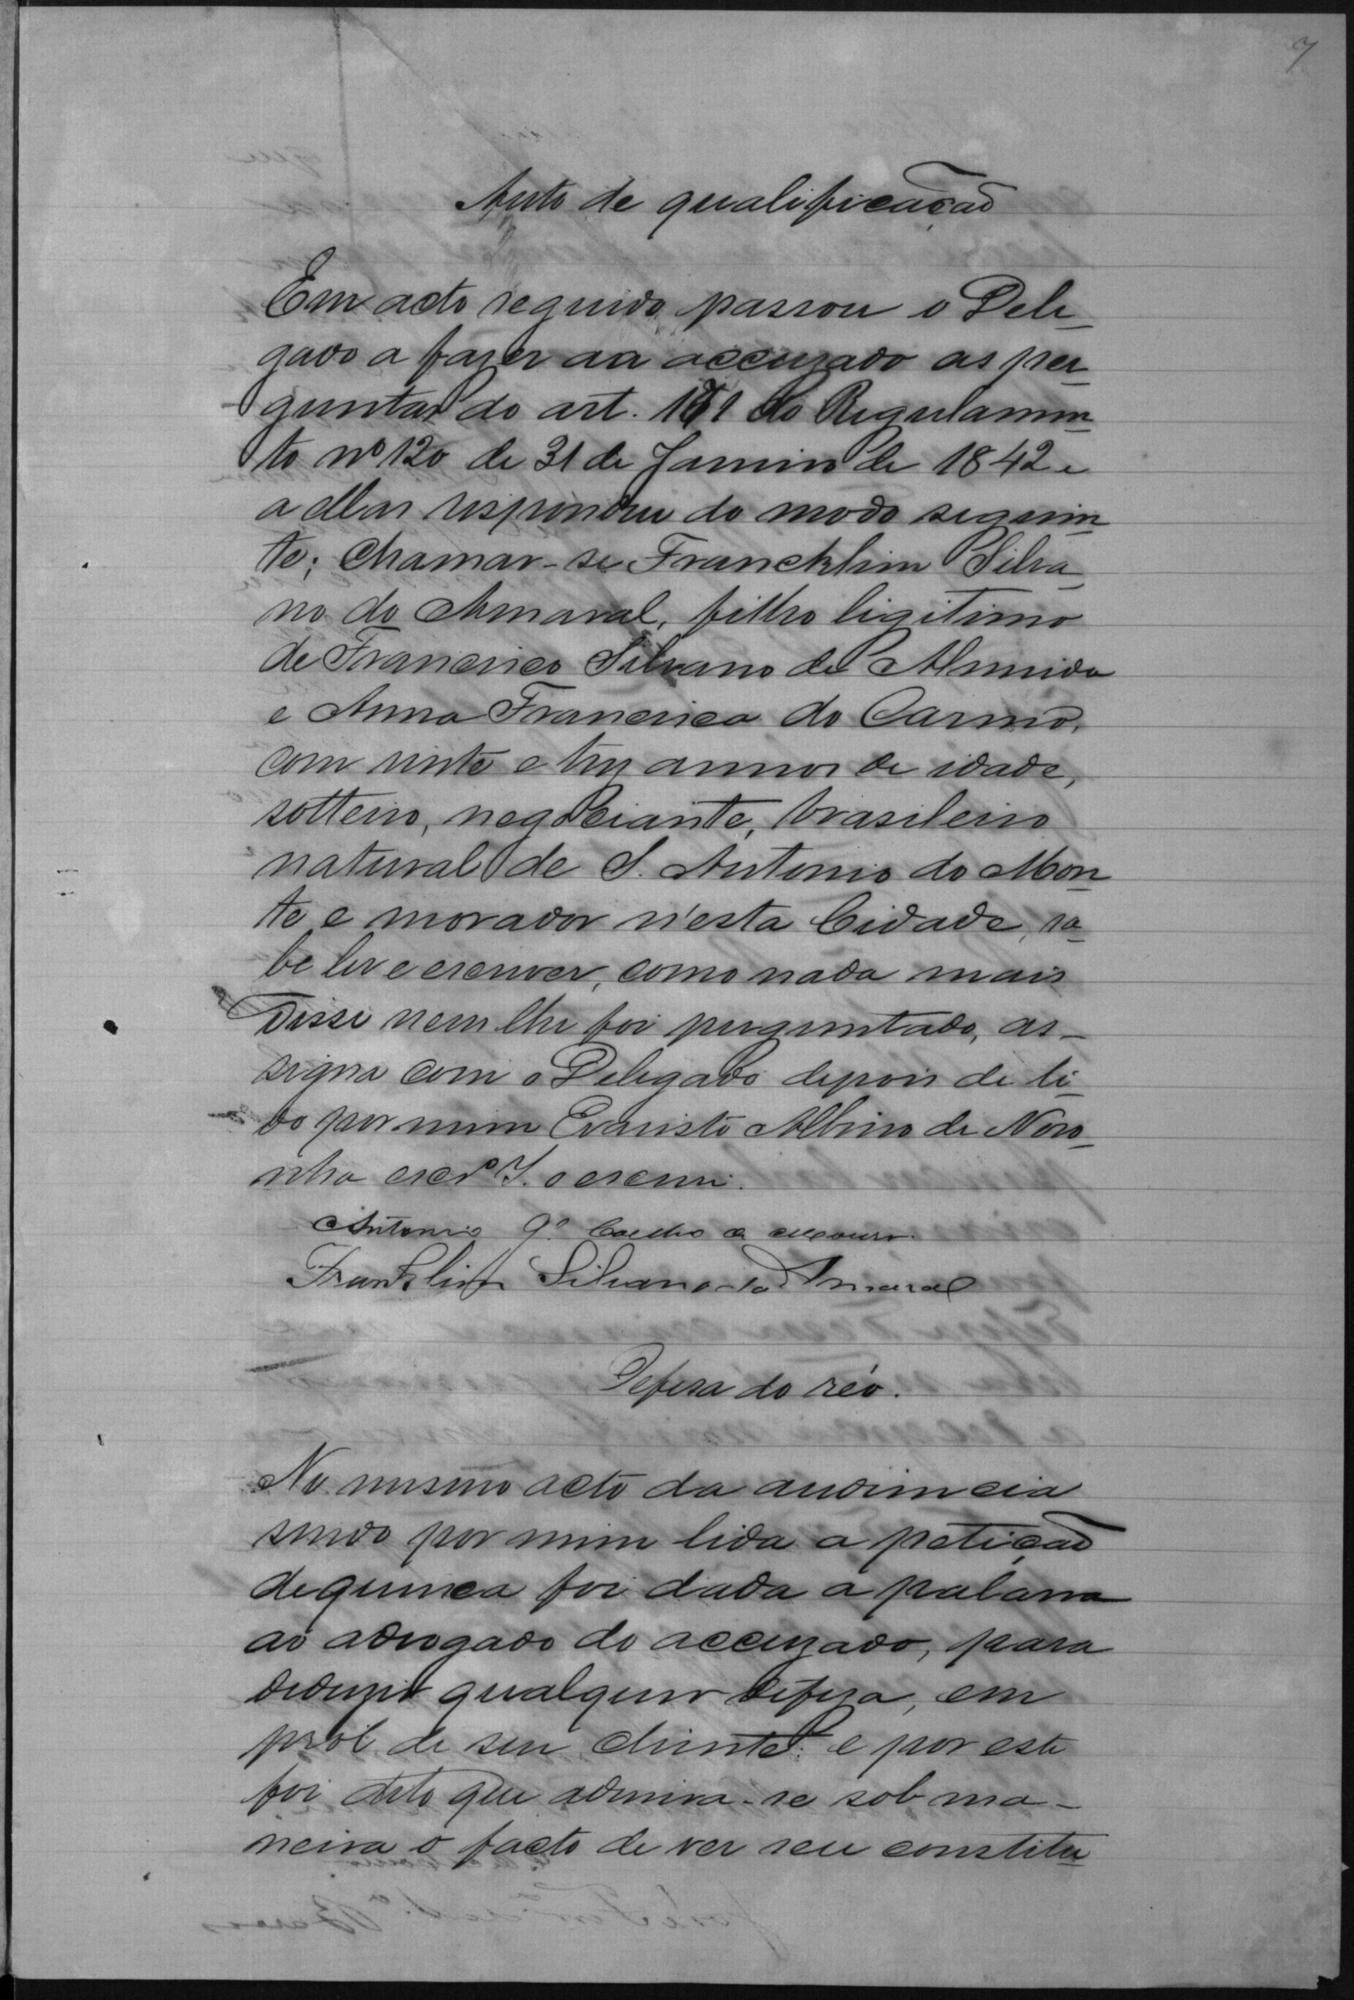 7
Auto de qualificação
Em acto seguido passou o Dele-
gado a fazer ao accuzado as per-
guntas do art. 171 do Regulamen-
to nº 120 de 31 de Janeiro de 1842 e
a ellas respondeu do modo seguin-
te; Chamar-se Francklim Silva-
no do Amaral, filho ligitimo
de Francisco Silvano de Almeida
e Anna Francisca do Carmo,
com vinte e trez annos de idade,
solteiro, negociante, brasileiro
natural de S. Antonio do Mon-
te e morador n'esta Cidade, sa-
be ler e escrever, como nada mais
Disse nem lhe foi perguntado, as-
signa com o Delegado depois de li-
do por mim Evaristo Albino de Noro-
nha escrº I. o escrevi.
Antonio Gº Coelho de Moura
Franklim Silvano do Amaral
Defesa do réo.
No mesmo acto da audiencia
sendo por mim lida a petição
de queixa foi dada a palavra
ao advogado do accuzado, para
deduzir qualquer defeza, em
pról de seu cliente: e por este
foi dito que admira-se sob ma-
neira o facto de ver seu constitu-